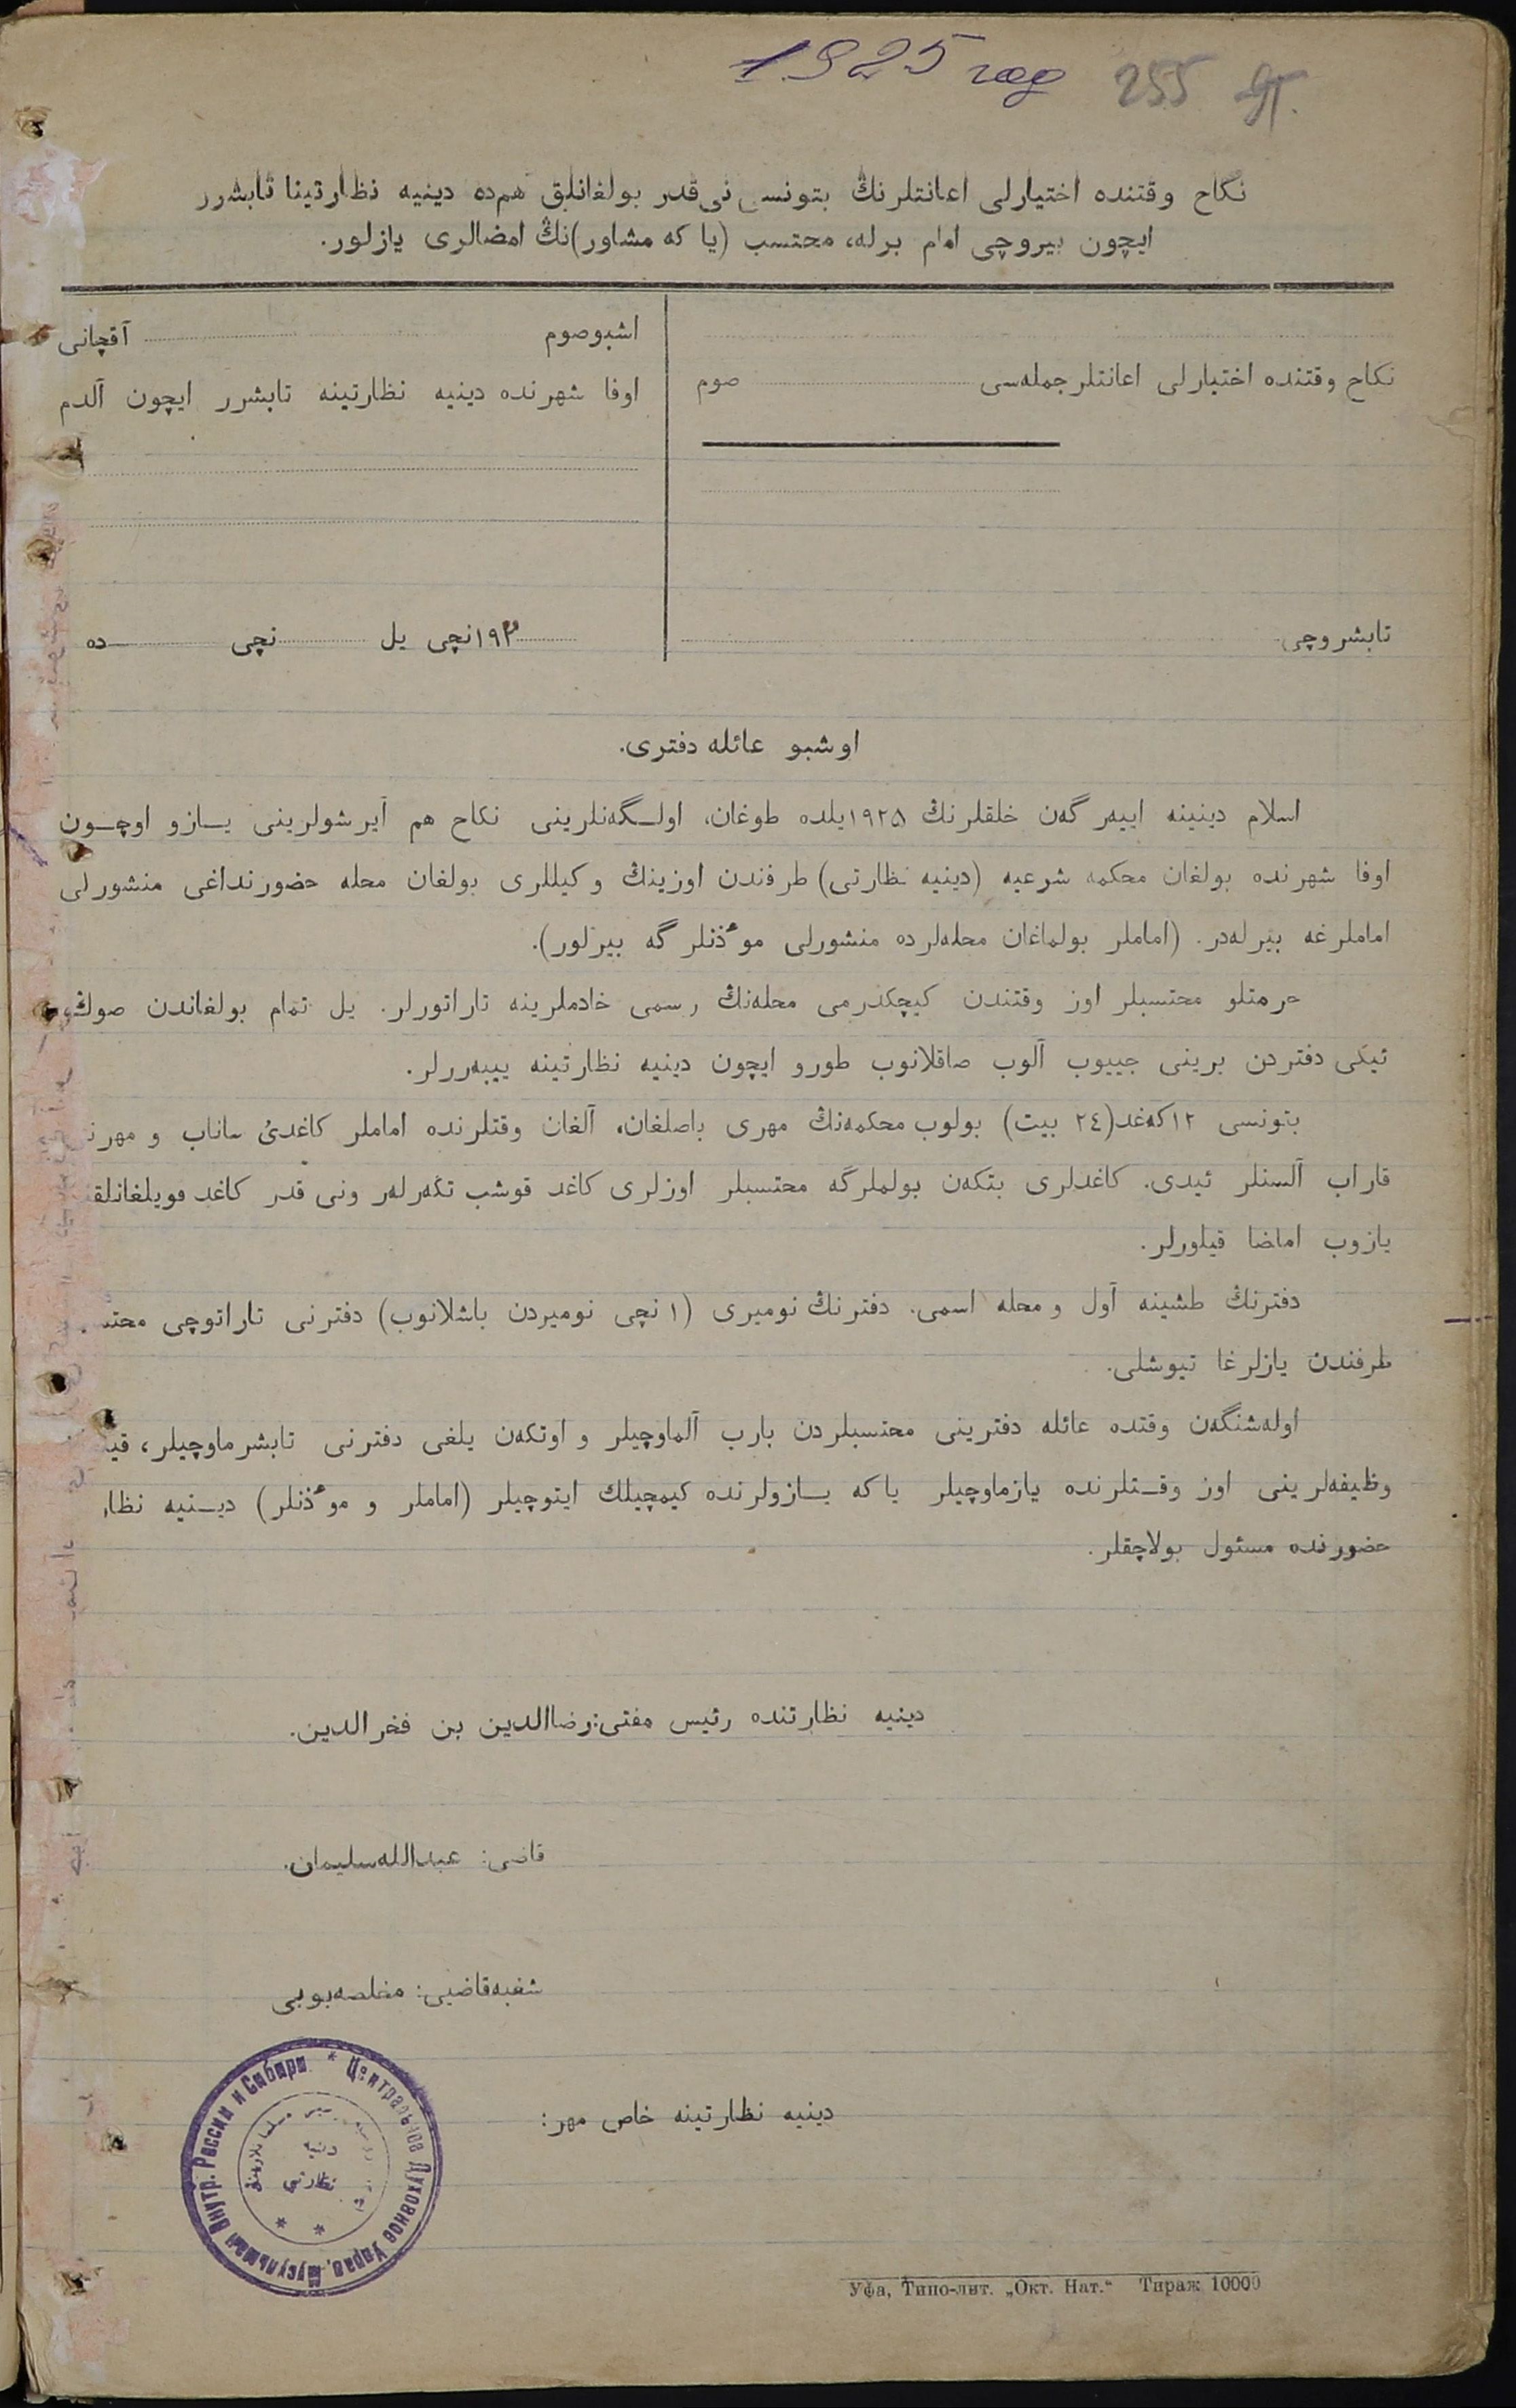 1925 год 255
نكاح وقتنده اختيارلى اعانتلرنڭ بتونسى نى‌قدر بولغانلق هم‌ده دينيه نظارتينا تابشرر
ايچون بيروچى امام برله، محتسب (يا كه مشاور)نڭ امضالرى يازلور.
نكاح وقتنده اختيارلى اعانتلر جمله‌سى صوم
تابشروچى
اشبو صوم آقچانى
اوفا شهرنده دينيه نظارتينه تابشرر ايچون آلدم
١٩٢ نچى يل نچى ده
اوشبو عائله دفترى.
اسلام دينينه اييه‌رگه‌ن خلقلرنڭ ١٩٢٥ يلده طوغان، اولـگه‌نلرينى نكاح هم آيرشولرينى يـازو اوچـون
اوفا شهرنده بولغان محكمه شرعيه (دينيه نظارتى) طرفندن اوزينڭ وكيللرى بولغان محله حضورنداغى منشورلى
اماملرغه بيرله‌در. (اماملر بولماغان محله‌لرده منشورلى موٴذنلرگه بيرلور).
حرمتلو محتسبلر اوز وقتندن كيچكدرمى محله‌نڭ رسمى خادملرينه تاراتورلر. يل تمام بولغاندن صوڭ
ئيكى دفتردن برينى جييوب آلوب صاقلانوب طورو ايچون دينيه نظارتينه ييبه‌ررلر.
بتونسى ١٢ كه‌غد (٢٤ بيت) بولوب محكمه‌نڭ مهرى باصلغان، آلغان وقتلرنده اماملر كاغدئ ساناب و
قاراب آلسنلر ئيدى. كاغدلرى بتكه‌ن بولملرگه محتسبلر اوزلرى كاغد قوشب تگه‌رله‌ر ونى قدر كاغد
يازوب امضا قيلورلر.
دفترنڭ طشينه آول و محله اسمى. دفترنڭ نوميرى (١ نچى نوميردن باشلانوب) دفترنى تاراتوچى
طرفندن يازلرغا تيوشلى.
اوله‌شنگه‌ن وقتده عائله دفترينى محتسبلردن بارب آلماوچيلر و اوتكه‌ن يلغى دفترنى تابشرماوچيلر،
وظيفه‌لرينى اوز وقـتلرنده يازماوچيلر ياكه يـازولرنده كيمچيلك ايتوچيلر (اماملر و موٴذنلر) ديـنيه
حضورنده مسئول بولاچقلر.
دينيه نظارتنده رئيس مفتى: رضاالدين بن فخرالدين.
قاضى: عبدالله سليمان.
شعبه قاضيى: مخلصه بوبى
دينيه نظارتينه خاص مهر:
Центральное Духовное Управ. Мусульман Внутр. России и Сибири
دينيه
نظارتى
Уфа, Типо-лит. „Окт. Нат.“ Тираж 10000